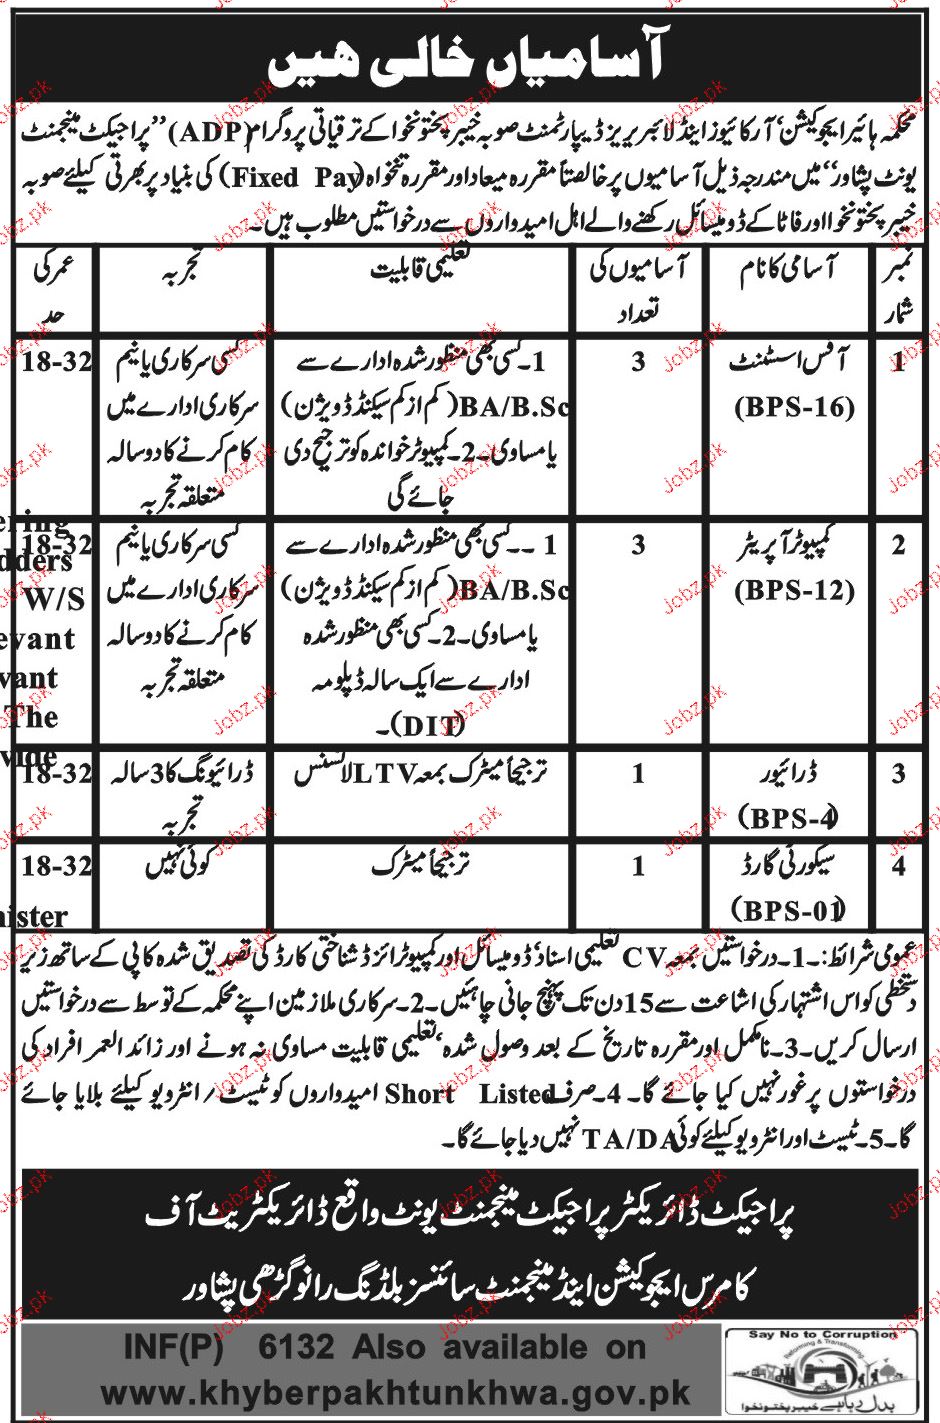 آسامیاں خالی ہیں
محکمہ ہائیر ایجوکیشن، آرکائیوز اینڈ لائبریریز ڈیپارٹمنٹ صوبہ خیبر پختونخوا کے ترقیاتی پروگرام (ADP) ”پراجیکٹ مینجمنٹ
یونٹ پشاور“ میں مندرجہ ذیل آسامیوں پر خالصتاً مقررہ میعاد اور مقررہ تنخواہ (Fixed Pay) کی بنیاد پر بھرتی کیلئے صوبہ
خیبر پختونخوا اور فاٹا کے ڈومیسائل رکھنے والے اہل امیدواروں سے درخواستیں مطلوب ہیں۔
نمبر شمار
آسامی کا نام
آسامیوں کی تعداد
تعلیمی قابلیت
تجربہ
عمر کی حد
1
آفس اسسٹنٹ
(BPS-16)
3
1۔ کسی بھی منظور شدہ ادارے سے
BA/B.Sc (کم از کم سیکنڈ ڈویژن)
یا مساوی۔ 2۔ کمپیوٹر خواندہ کو ترجیح دی
جائے گی
کسی سرکاری یا نیم
سرکاری ادارے میں
کام کرنے کا دو سالہ
متعلقہ تجربہ
18-32
2
کمپیوٹر آپریٹر
(BPS-12)
3
1 ۔۔ کسی بھی منظور شدہ ادارے سے
BA/B.Sc (کم از کم سیکنڈ ڈویژن)
یا مساوی۔ 2۔ کسی بھی منظور شدہ
ادارے سے ایک سالہ ڈپلومہ
(DIT)۔
کسی سرکاری یا نیم
سرکاری ادارے میں
کام کرنے کا دو سالہ
متعلقہ تجربہ
18-32
3
ڈرائیور
(BPS-4)
1
ترجیحاً میٹرک بمعہ LTV لائسنس
ڈرائیونگ کا 3 سالہ
تجربہ
18-32
4
سیکورٹی گارڈ
(BPS-01)
1
ترجیحاً میٹرک
کوئی نہیں
18-32
ering
dders
W/S
evant
vant
The
vide
nister
عمومی شرائط:۔ 1۔ درخواستیں بمعہ CV تعلیمی اسناد، ڈومیسائل اور کمپیوٹرائزڈ شناختی کارڈ کی تصدیق شدہ کاپی کے ساتھ زیر
دستخطی کو اس اشتہار کی اشاعت سے 15 دن تک پہنچ جانی چاہئیں۔ 2۔ سرکاری ملازمین اپنے محکمہ کے توسط سے درخواستیں
ارسال کریں۔ 3۔ نامکمل اور مقررہ تاریخ کے بعد وصول شدہ، تعلیمی قابلیت مساوی نہ ہونے اور زائد العمر افراد کی
درخواستوں پر غور نہیں کیا جائے گا۔ 4۔ صرف Short Listed امیدواروں کو ٹیسٹ / انٹرویو کیلئے بلایا جائے
گا۔ 5۔ ٹیسٹ اور انٹرویو کیلئے کوئی TA/DA نہیں دیا جائے گا۔
پراجیکٹ ڈائریکٹر پراجیکٹ مینجمنٹ یونٹ واقع ڈائریکٹریٹ آف
کامرس ایجوکیشن اینڈ مینجمنٹ سائنسز بلڈنگ رانو گڑھی پشاور
INF(P) 6132 Also available on
www.khyberpakhtunkhwa.gov.pk
Say No to Corruption
Reforming & Transforming
بدل رہا ہے خیبر پختونخوا
Jobz.pk